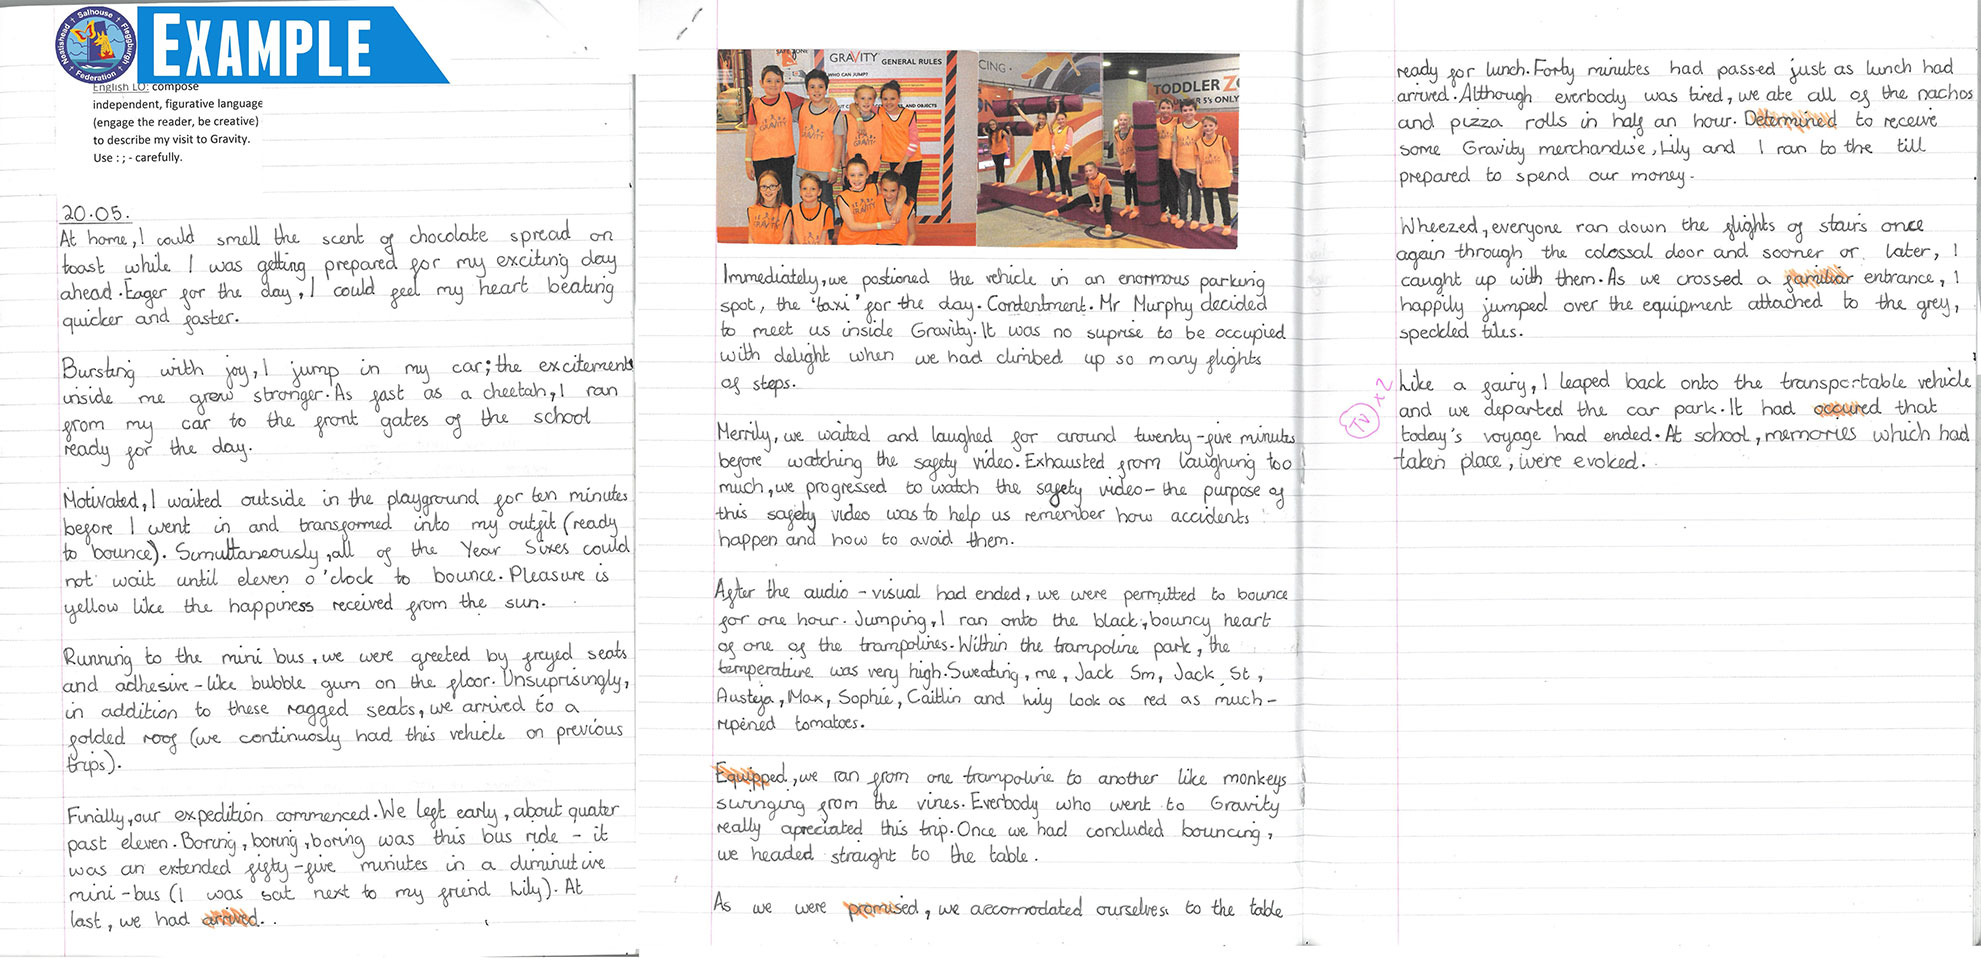 Neatishead Salhouse Fleggburgh
Federation
EXAMPLE
English LO: compose
independent, figurative language
(engage the reader, be creative)
to describe my visit to Gravity.
Use : ; - carefully.
20.05.
At home, I could smell the scent of chocolate spread on
toast while I was getting prepared for my exciting day
ahead. Eager for the day, I could feel my heart beating
quicker and faster.
Bursting with joy, I jump in my car; the excitement
inside me grew stronger. As fast as a cheetah, I ran
from my car to the front gates of the school
ready for the day.
Motivated, I waited outside in the playground for ten minutes
before I went in and transformed into my outfit (ready
to bounce). Simultaneously, all of the Year Sixes could
not wait until eleven o'clock to bounce. Pleasure is
yellow like the happiness received from the sun.
Running to the mini bus, we were greeted by freyed seats
and adhesive-like bubble gum on the floor. Unsuprisingly,
in addition to these ragged seats, we arrived to a
folded roof (we continuosly had this vehicle on previous
trips).
Finally, our expedition commenced. We left early, about quater
past eleven. Boring, boring, boring was this bus ride - it
was an extended fifty-five minutes in a diminutive
mini-bus (I was sat next to my friend Lily). At
last, we had arrived.
GRAVITY GENERAL RULES
WHO CAN JUMP?
AND OBJECTS
GRAVITY
TODDLER ZO
5's ONLY
Immediately, we postioned the vehicle in an enormous parking
spot, the 'taxi' for the day. Contentment. Mr Murphy decided
to meet us inside Gravity. It was no suprise to be occupied
with delight when we had climbed up so many flights
of steps.
Merrily, we waited and laughed for around twenty-five minutes
before watching the safety video. Exhausted from laughing too
much, we progressed to watch the safety video - the purpose of
this safety video was to help us remember how accidents
happen and how to avoid them.
After the audio-visual had ended, we were permitted to bounce
for one hour. Jumping, I ran onto the black, bouncy heart
of one of the trampolines. Within the trampoline park, the
temperature was very high. Sweating, me, Jack Sm, Jack St,
Austeja, Max, Sophie, Caitlin and Lily look as red as much-
ripened tomatoes.
Equipped, we ran from one trampoline to another like monkeys
swinging from the vines. Everbody who went to Gravity
really apreciated this trip. Once we had concluded bouncing,
we headed straight to the table.
As we were promised, we accomodated ourselves to the table
ready for lunch. Forty minutes had passed just as lunch had
arrived. Although everbody was tired, we ate all of the nachos
and pizza rolls in half an hour. Determined to receive
some Gravity merchandise, Lily and I ran to the till
prepared to spend our money.
Wheezed, everyone ran down the flights of stairs once
again through the colossal door and sooner or later, I
caught up with them. As we crossed a familiar entrance, I
happily jumped over the equipment attached to the grey,
speckled tiles.
TV x 2
Like a fairy, I leaped back onto the transportable vehicle
and we departed the car park. It had occured that
today's voyage had ended. At school, memories which had
taken place, were evoked.